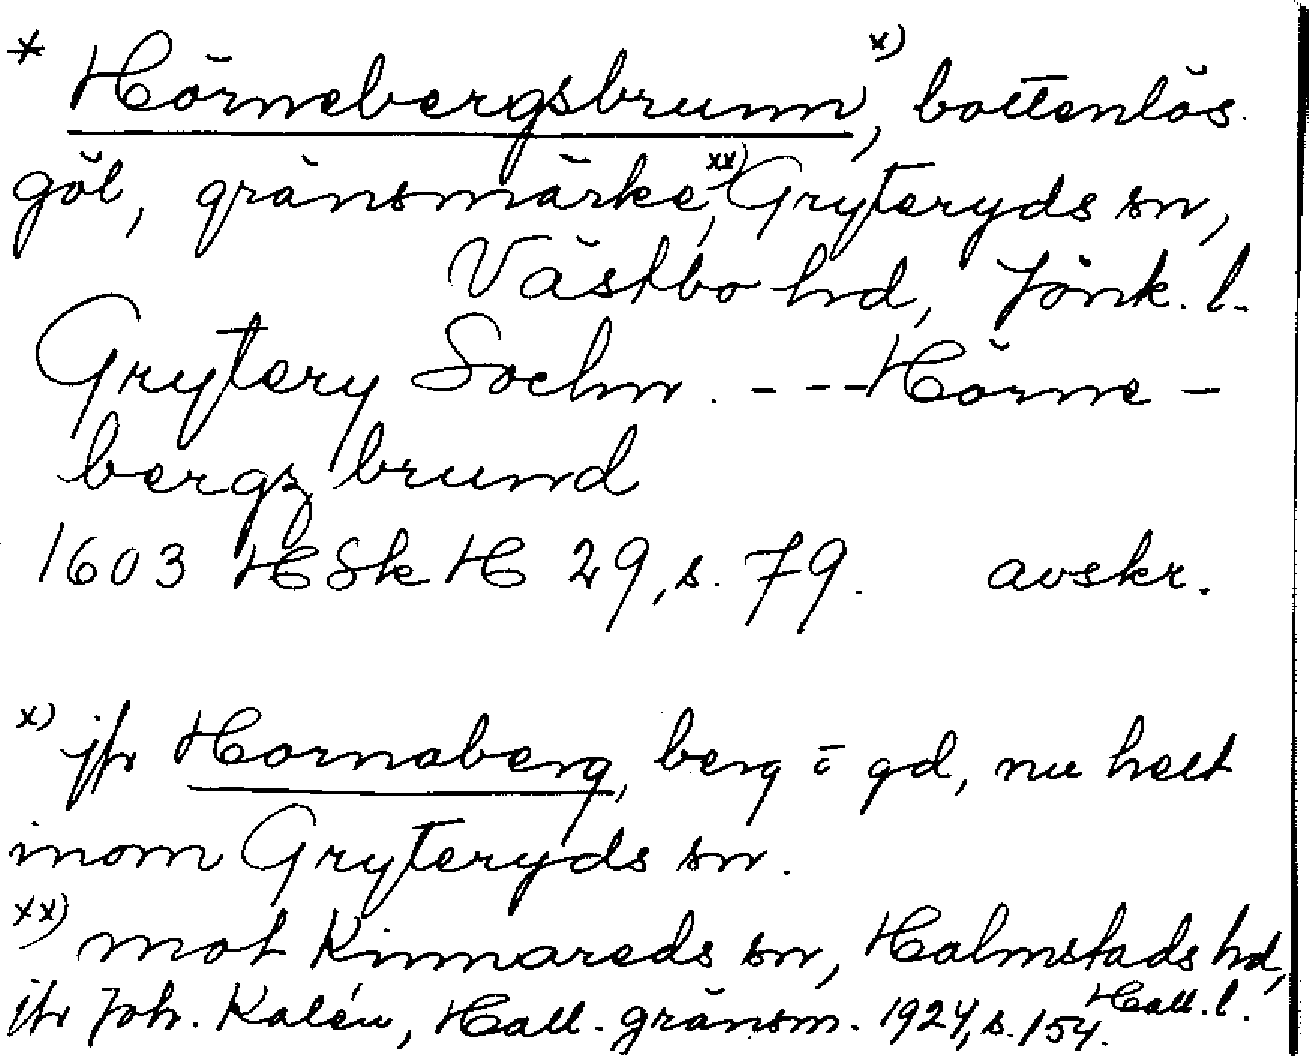 * Hörnebergsbrunn, x) bottenlös
göl, gränsmärke, xx) Gryteryds sn,
Västbo hd, Jönk. l.
Grytery Sochn. - - - Hörne -
bergz brund
1603 HSk H 29, s. 79. avskr.
x) jfr Hornaberg, berg o gd, nu helt
inom Gryteryds sn.
xx) mot Kinnareds sn, Halmstads hd,
Hall. l.
jfr Joh. Kalén, Hall. gränsm. 1924, s. 154.